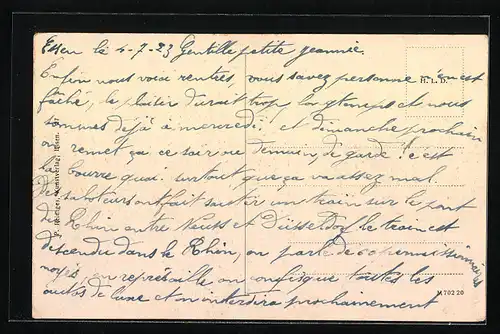 Essen le 4-7-23 Gentille petite Jeannie.
Enfin nous voici rentrés, vous savez personne n'en est
H. L. D.
fâché, le plaisir durait trop longtemps et nous
sommes déjà à mercredi, et dimanche prochain
on remet ça ce soir ou demain, de garde! c'est
bourre quoi. surtout que ça va assez mal.
des saboteurs ont fait sauter un train sur le pont
du Rhin entre Neuss et Düsseldorf le train est
descendu dans le Rhin, on parle de 60 permissionnaires
noyés, en représaille, on confisque toutes les
autos de luxe et on interdira prochainement
Kunstverlag, Essen.
M 702 20